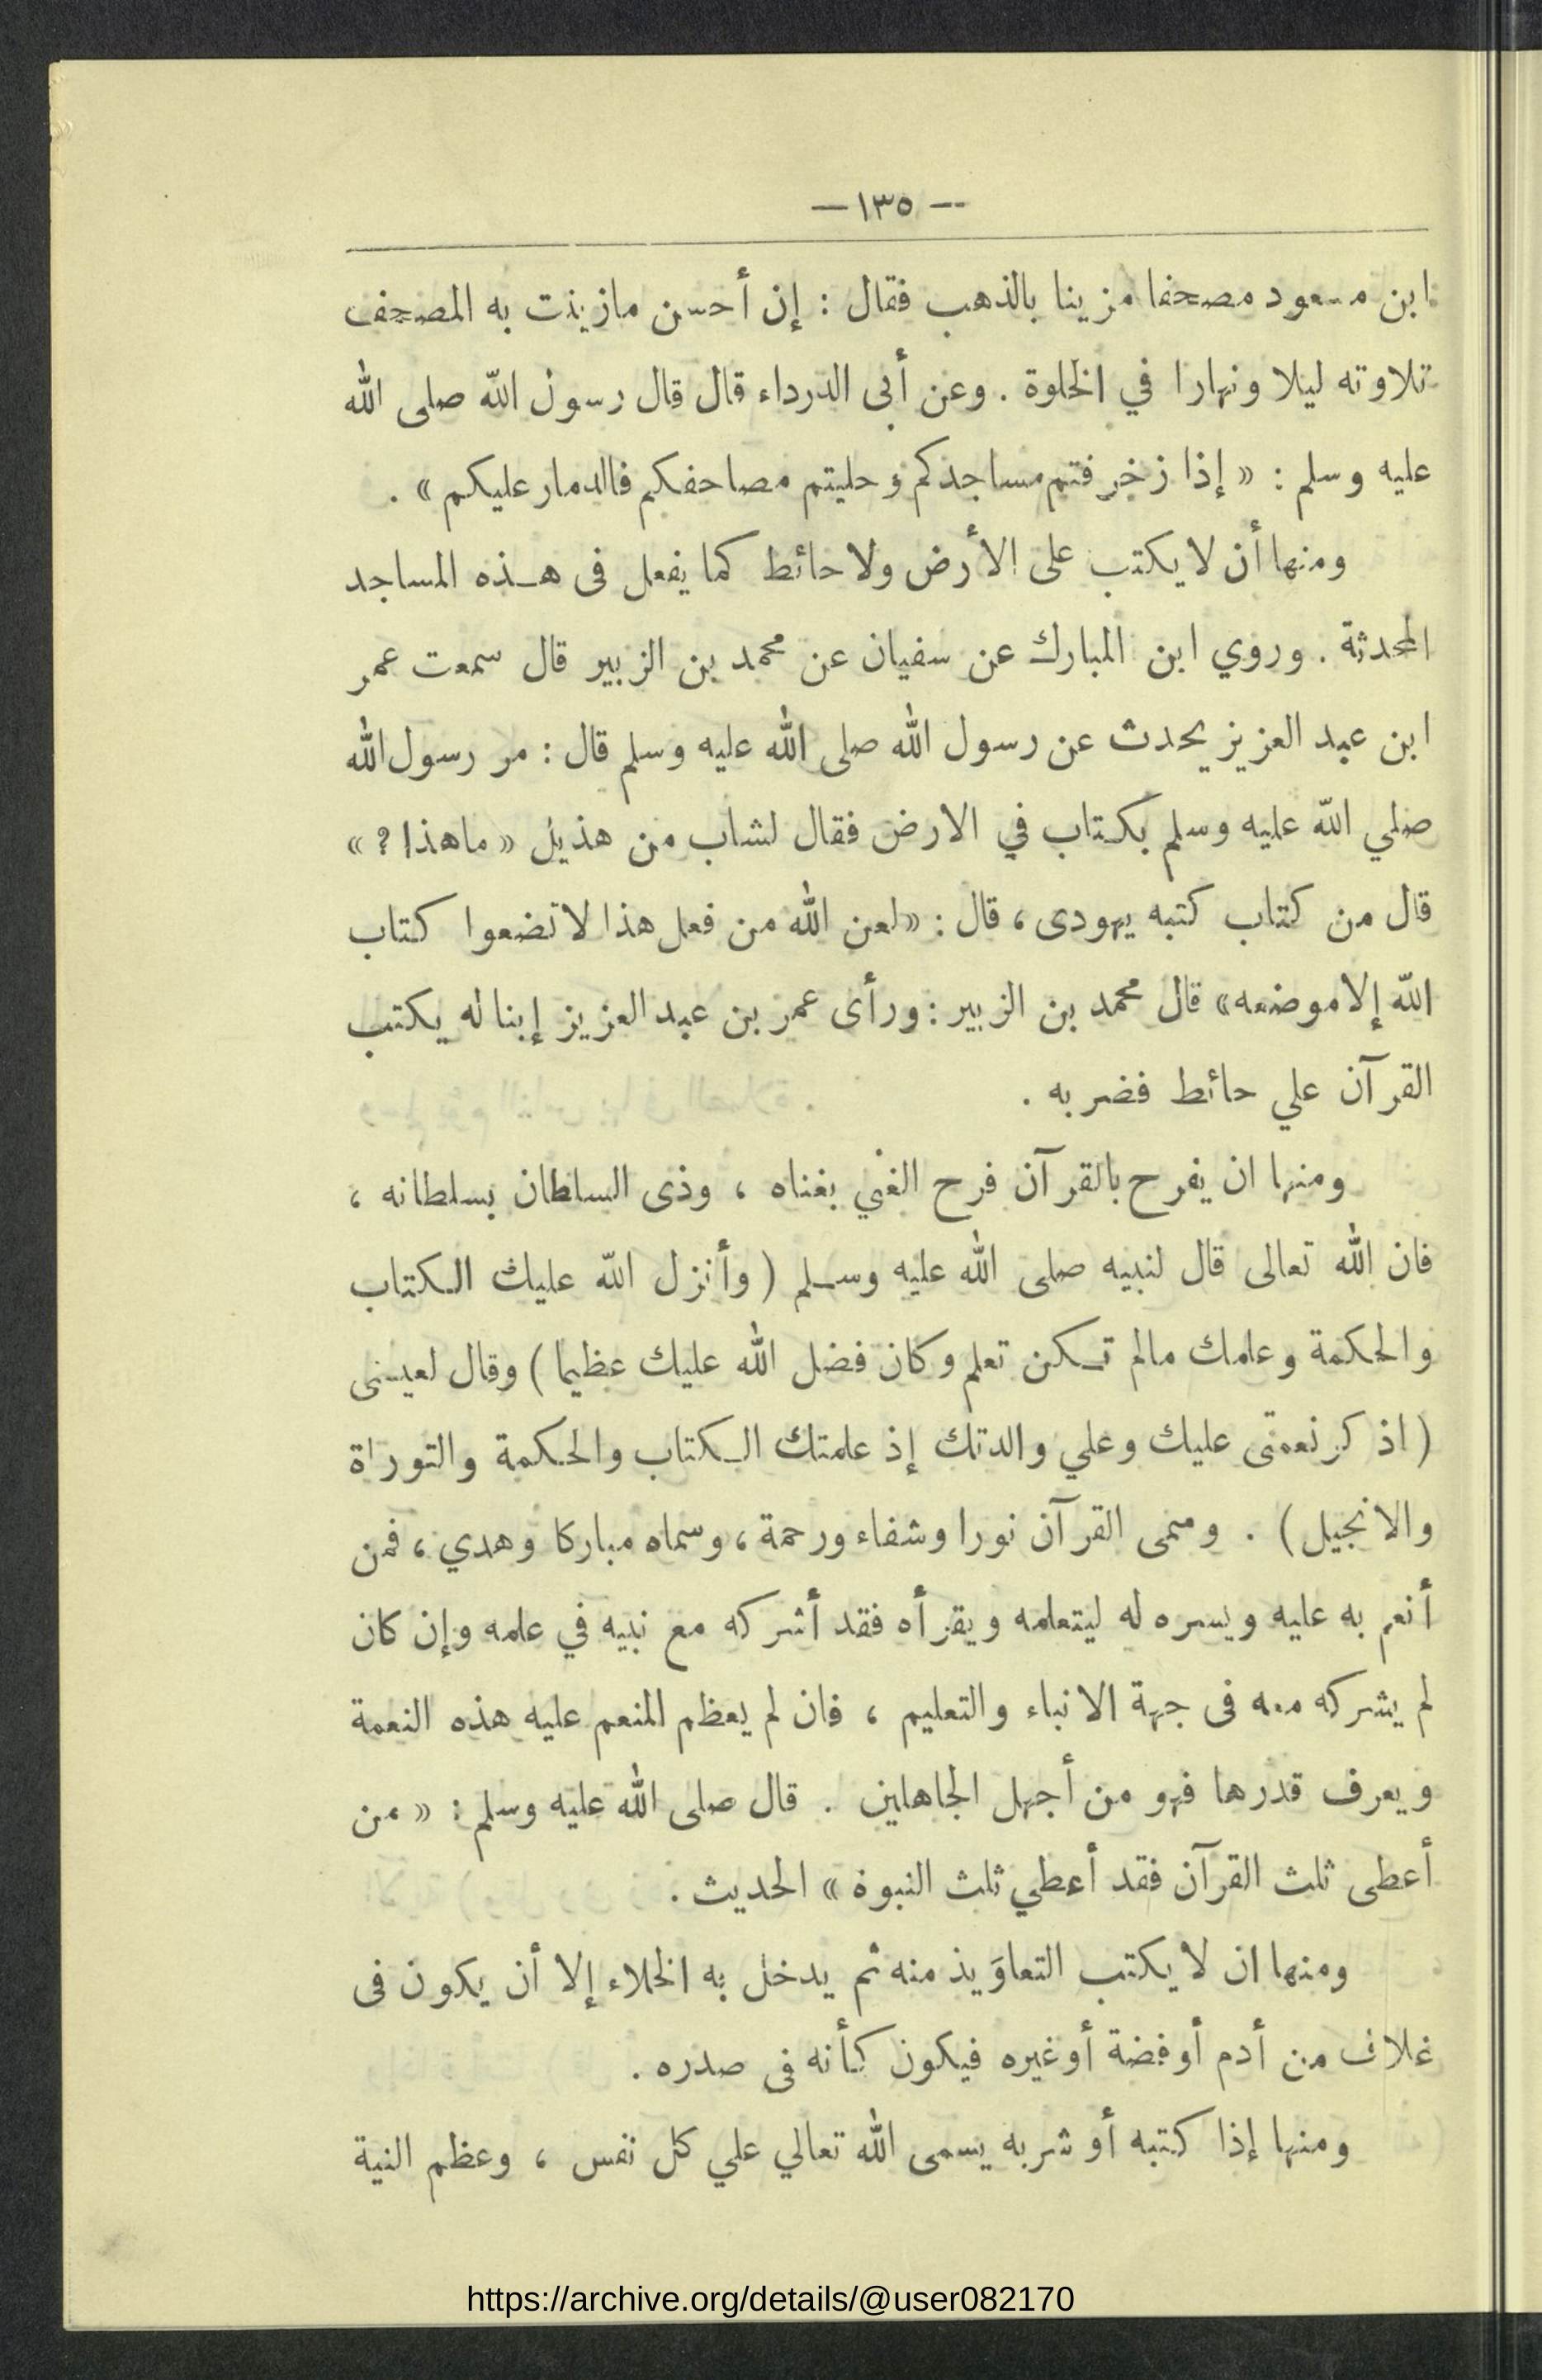 — ١٣٥ —
ابن مسعود مصحفا مزينا بالذهب فقال : إن أحسن مازينت به المصحف
تلاوته ليلا ونهارا في الخلوة . وعن أبى الدرداء قال قال رسول الله صلى الله
عليه وسلم : « إذا زخرفتم مساجدكم وحليتم مصاحفكم فالدمار عليكم » .
ومنها أن لا يكتب على الأرض ولا حائط كما يفعل فى هذه المساجد
المحدثة . وروي ابن المبارك عن سفيان عن محمد بن الزبير قال سمعت عمر
ابن عبد العزيز يحدث عن رسول الله صلى الله عليه وسلم قال : مر رسول الله
صلي الله عليه وسلم بكتاب في الارض فقال لشاب من هذيل « ماهذا ؟ »
قال من كتاب كتبه يهودى ، قال : « لعن الله من فعل هذا لا تضعوا كتاب
الله إلا موضعه » قال محمد بن الزبير : ورأى عمر بن عبد العزيز إبنا له يكتب
القرآن علي حائط فضربه .
ومنها ان يفرح بالقرآن فرح الغني بغناه ، وذى السلطان بسلطانه ،
فان الله تعالى قال لنبيه صلى الله عليه وسلم ( وأنزل الله عليك الكتاب
والحكمة وعلمك مالم تكن تعلم وكان فضل الله عليك عظيما ) وقال لعيسى
( اذ كر نعمتى عليك وعلي والدتك إذ علمتك الكتاب والحكمة والتوراة
والانجيل ) . وسمى القرآن نورا وشفاء ورحمة ، وسماه مباركا وهدي ، فمن
أنعم به عليه ويسره له ليتعلمه ويقرأه فقد أشركه مع نبيه في علمه وإن كان
لم يشركه معه فى جهة الانباء والتعليم ، فان لم يعظم المنعم عليه هذه النعمة
ويعرف قدرها فهو من أجهل الجاهلين . قال صلى الله عليه وسلم : « من
أعطى ثلث القرآن فقد أعطي ثلث النبوة » الحديث .
ومنها ان لا يكتب التعاوَيذ منه ثم يدخل به الخلاء إلا أن يكون فى
غلاف من أدم أو فضة أو غيره فيكون كأنه فى صدره .
ومنها إذا كتبه أو شربه يسمى الله تعالي علي كل نفس ، وعظم النية
https://archive.org/details/@user082170